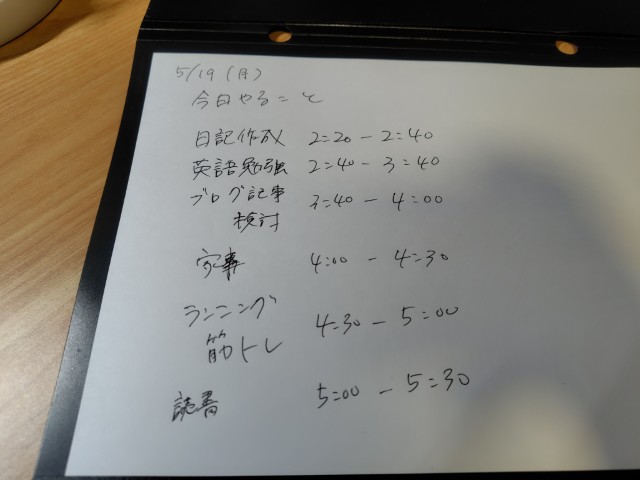 5/19 (月)
今日やること
日記作成 2:20 - 2:40
英語勉強 2:40 - 3:40
ブログ記事 3:40 - 4:00
検討
家事 4:00 - 4:30
ランニング
筋トレ 4:30 - 5:00
読書 5:00 - 5:30